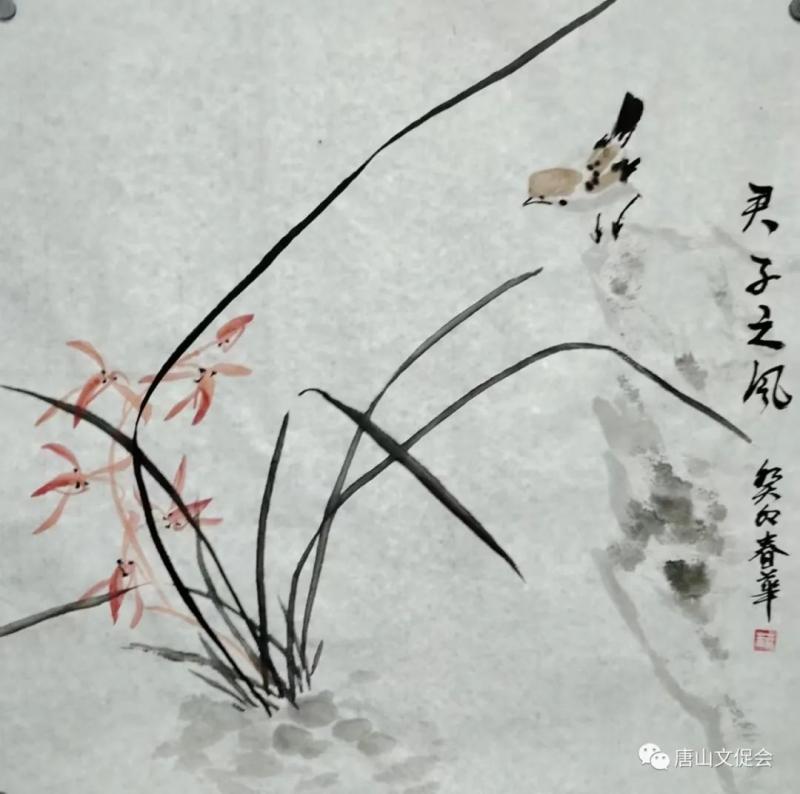 君子之风
癸卯春华
唐山文促会